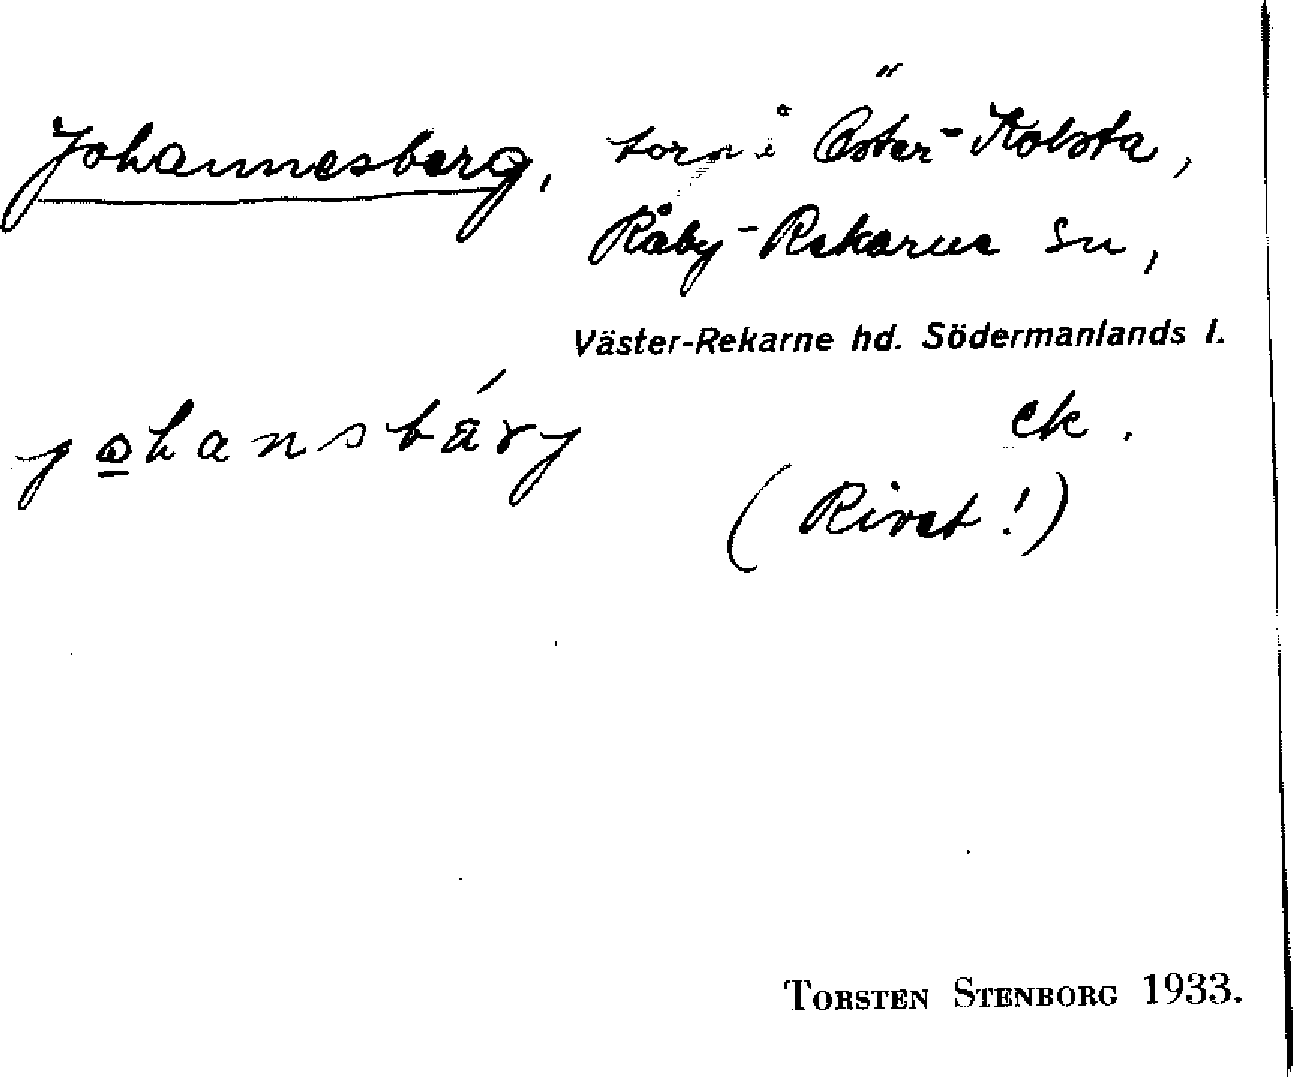 Johannesberg, torp i Öster-Kolsta,
Råby-Rekarne sn,
Väster-Rekarne hd. Södermanlands l.
johansbärj ck.
(Rivet!)
TORSTEN STENBORG 1933.